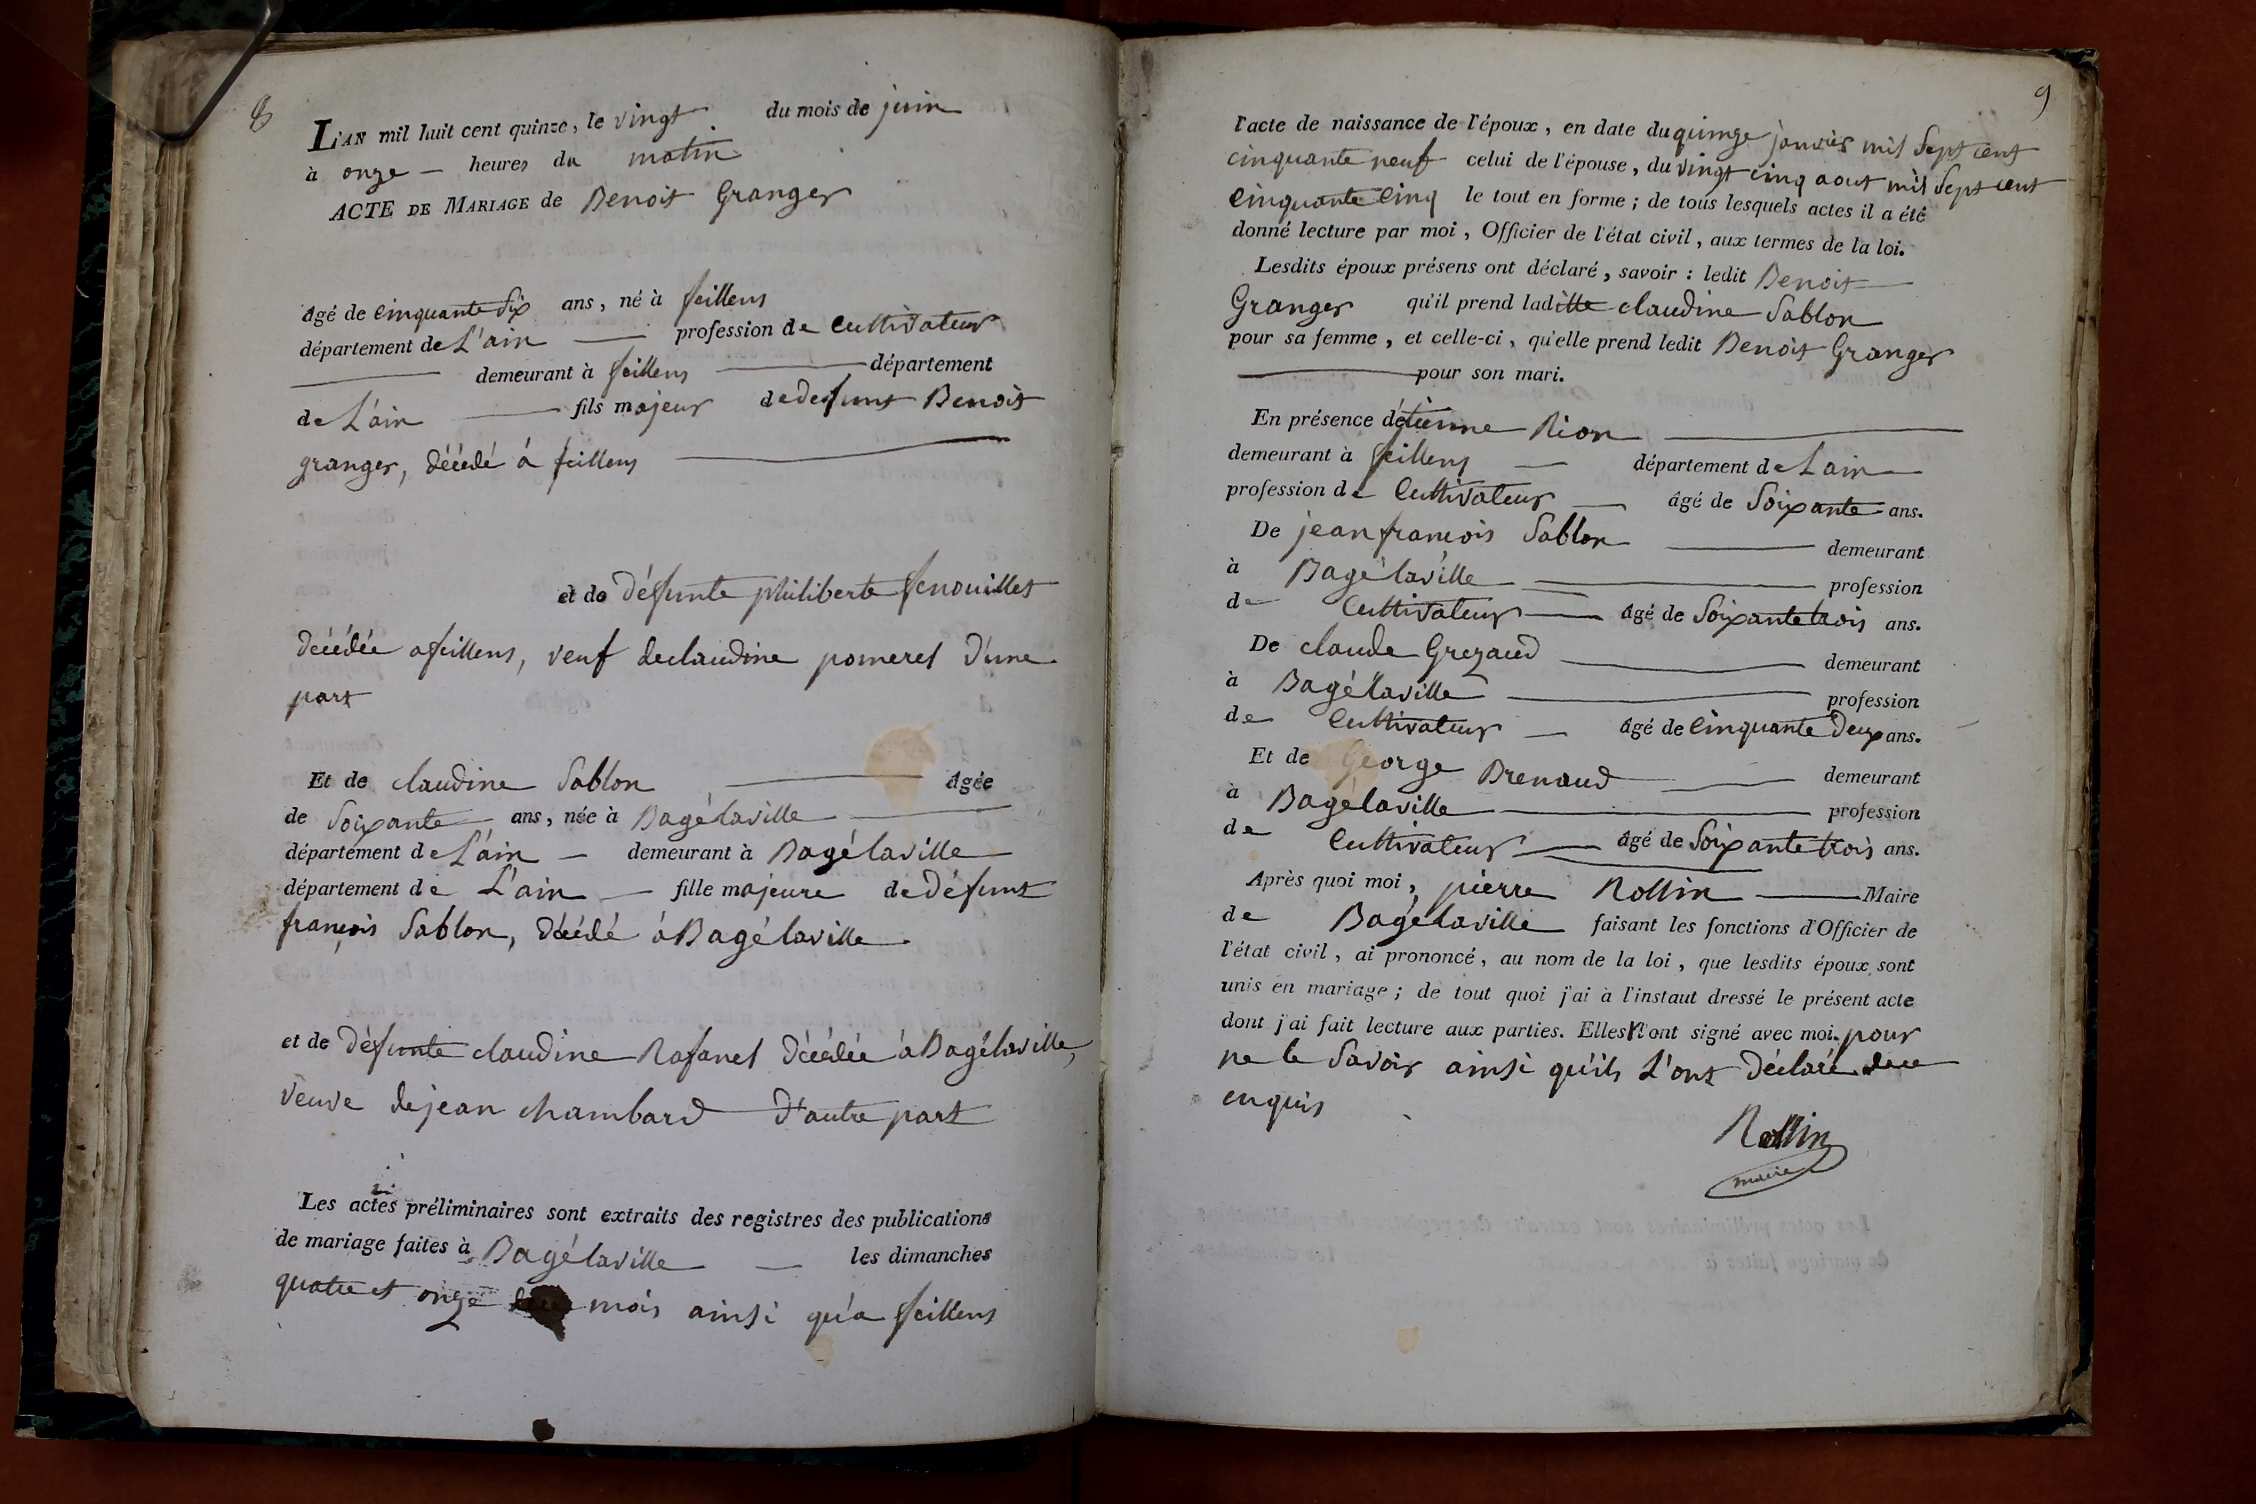 8
L'AN mil huit cent quinze, le vingt du mois de juin
à onze heures du matin
ACTE DE MARIAGE de Benoit Granger
âgé de cinquante Six ans, né à feillens
département de L'ain profession de Cultivateur
demeurant à feillens département
de L'ain fils majeur de defunt Benoit
granger, décédé à feillens
et de défunte philiberte fenouillet
décédée a feillens, veuf de claudine pomerel d'une
part
Et de claudine Sablon âgée
de Soixante ans, née à Bagélaville
département de L'ain demeurant à Bagélaville
département de L'ain fille majeure de défunt
françois Sablon, décédé à Bagélaville
et de défunte claudine Rafanel décédée à Bagélaville,
veuve de jean chambard d'autre part
Les actes préliminaires sont extraits des registres des publications
de mariage faites à Bagélaville les dimanches
quatre et onze mois ainsi qu'a feillens
9
l'acte de naissance de l'époux, en date du quinze janvier mil Sept cent
cinquante neuf celui de l'épouse, du vingt cinq aout mil Sept cent
cinquante cinq le tout en forme ; de tous lesquels actes il a été
donné lecture par moi, Officier de l'état civil, aux termes de la loi.
Lesdits époux présens ont déclaré, savoir : ledit Benoit
Granger qu'il prend ladite claudine Sablon
pour sa femme, et celle-ci, qu'elle prend ledit Benoit Granger
pour son mari.
En présence d'étienne Rion
demeurant à feillens département de L'ain
profession de Cultivateur âgé de Soixante ans.
De jean francois Sablon demeurant
à Bagélaville profession
de Cultivateur âgé de Soixante trois ans.
De claude Grezaud demeurant
à Bagélaville profession
de Cultivateur âgé de cinquante deux ans.
Et de George Brenaud demeurant
à Bagélaville profession
de Cultivateur âgé de Soixante trois ans.
Après quoi moi, pierre Rollin Maire
de Bagélaville faisant les fonctions d'Officier de
l'état civil, ai prononcé, au nom de la loi, que lesdits époux sont
unis en mariage ; de tout quoi j'ai à l'instaut dressé le présent acte
dont j'ai fait lecture aux parties. Elles n'ont signé avec moi. pour
ne le Savoir ainsi qu'ils L'ont déclaré
enquis
Rollin
maire